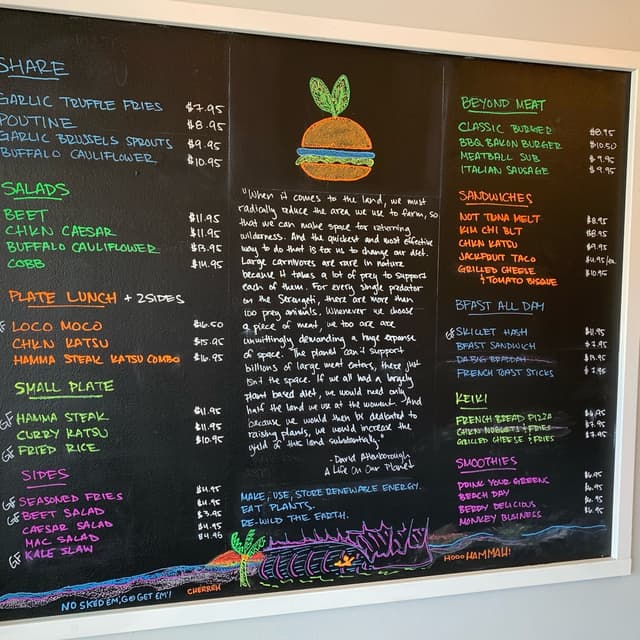 SHARE
GARLIC TRUFFLE FRIES $7.95
POUTINE $8.95
GARLIC BRUSSELS SPROUTS $9.95
BUFFALO CAULIFLOWER $10.95
SALADS
BEET $11.95
CHKN CAESAR $11.95
BUFFALO CAULIFLOWER $13.95
COBB $14.95
PLATE LUNCH + 2 SIDES
GF LOCO MOCO $16.50
CHKN KATSU $15.95
HAMMA STEAK KATSU COMBO $16.95
SMALL PLATE
GF HAMMA STEAK $11.95
CURRY KATSU $11.95
GF FRIED RICE $10.95
SIDES
GF SEASONED FRIES $4.95
GF BEET SALAD $4.95
CAESAR SALAD $3.95
MAC SALAD $4.95
GF KALE SLAW $4.95
NO SKED EM, GO GET EM'!
CHERREH
"When it comes to the land, we must
radically reduce the area we use to farm, so
that we can make space for returning
wilderness. And the quickest and most effective
way to do that is for us to change our diet.
Large carnivores are rare in nature
because it takes a lot of prey to support
each of them. For every single predator
on the Serengeti, there are more than
100 prey animals. Whenever we choose
a piece of meat, we too are
unwittingly demanding a huge expanse
of space. The planet can't support
billions of large meat eaters, there just
isn't the space. If we all had a largely
plant based diet, we would need only
half the land we use at the moment. And
because we would then be dedicated to
raising plants, we would increase the
yield of this land substantially."
- David Attenborough
A Life On Our Planet
MAKE, USE, STORE RENEWABLE ENERGY.
EAT PLANTS.
RE-WILD THE EARTH.
BEYOND MEAT
CLASSIC BURGER $8.95
BBQ BACON BURGER $10.50
MEATBALL SUB $9.95
ITALIAN SAUSAGE $9.95
SANDWICHES
NOT TUNA MELT $8.95
KIM CHI BLT $8.95
CHKN KATSU $9.95
JACKFRUIT TACO $4.95/ea
GRILLED CHEESE $10.95
+ TOMATO BISQUE
BFAST ALL DAY
GF SKILLET HASH $11.95
BFAST SANDWICH $7.95
DA BIG BRADDAH $11.95
FRENCH TOAST STICKS $7.95
KEIKI
FRENCH BREAD PIZZA $6.95
CHKN NUGGETS + FRIES $7.95
GRILLED CHEESE + FRIES $7.95
SMOOTHIES
DRINK YOUR GREENS $6.95
BEACH DAY $6.95
BERRY DELICIOUS $6.95
MONKEY BUSINESS $6.95
HOOO HAMMAH!